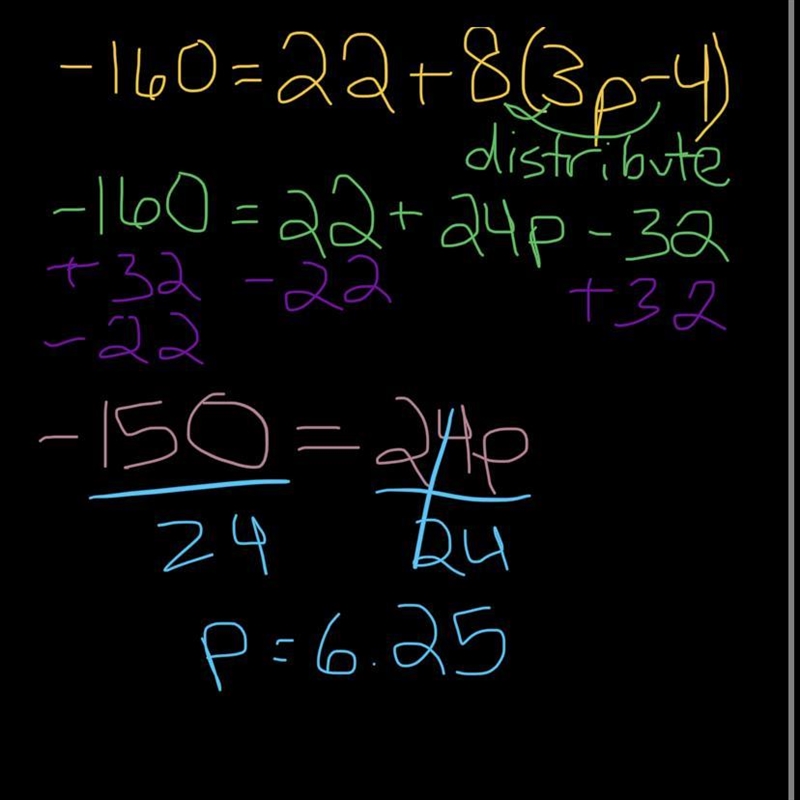 -160=22+8(3p-4)
distribute
-160=22+24p-32
+32 -22 +32
-22
-150=24p
24 24
p=6.25